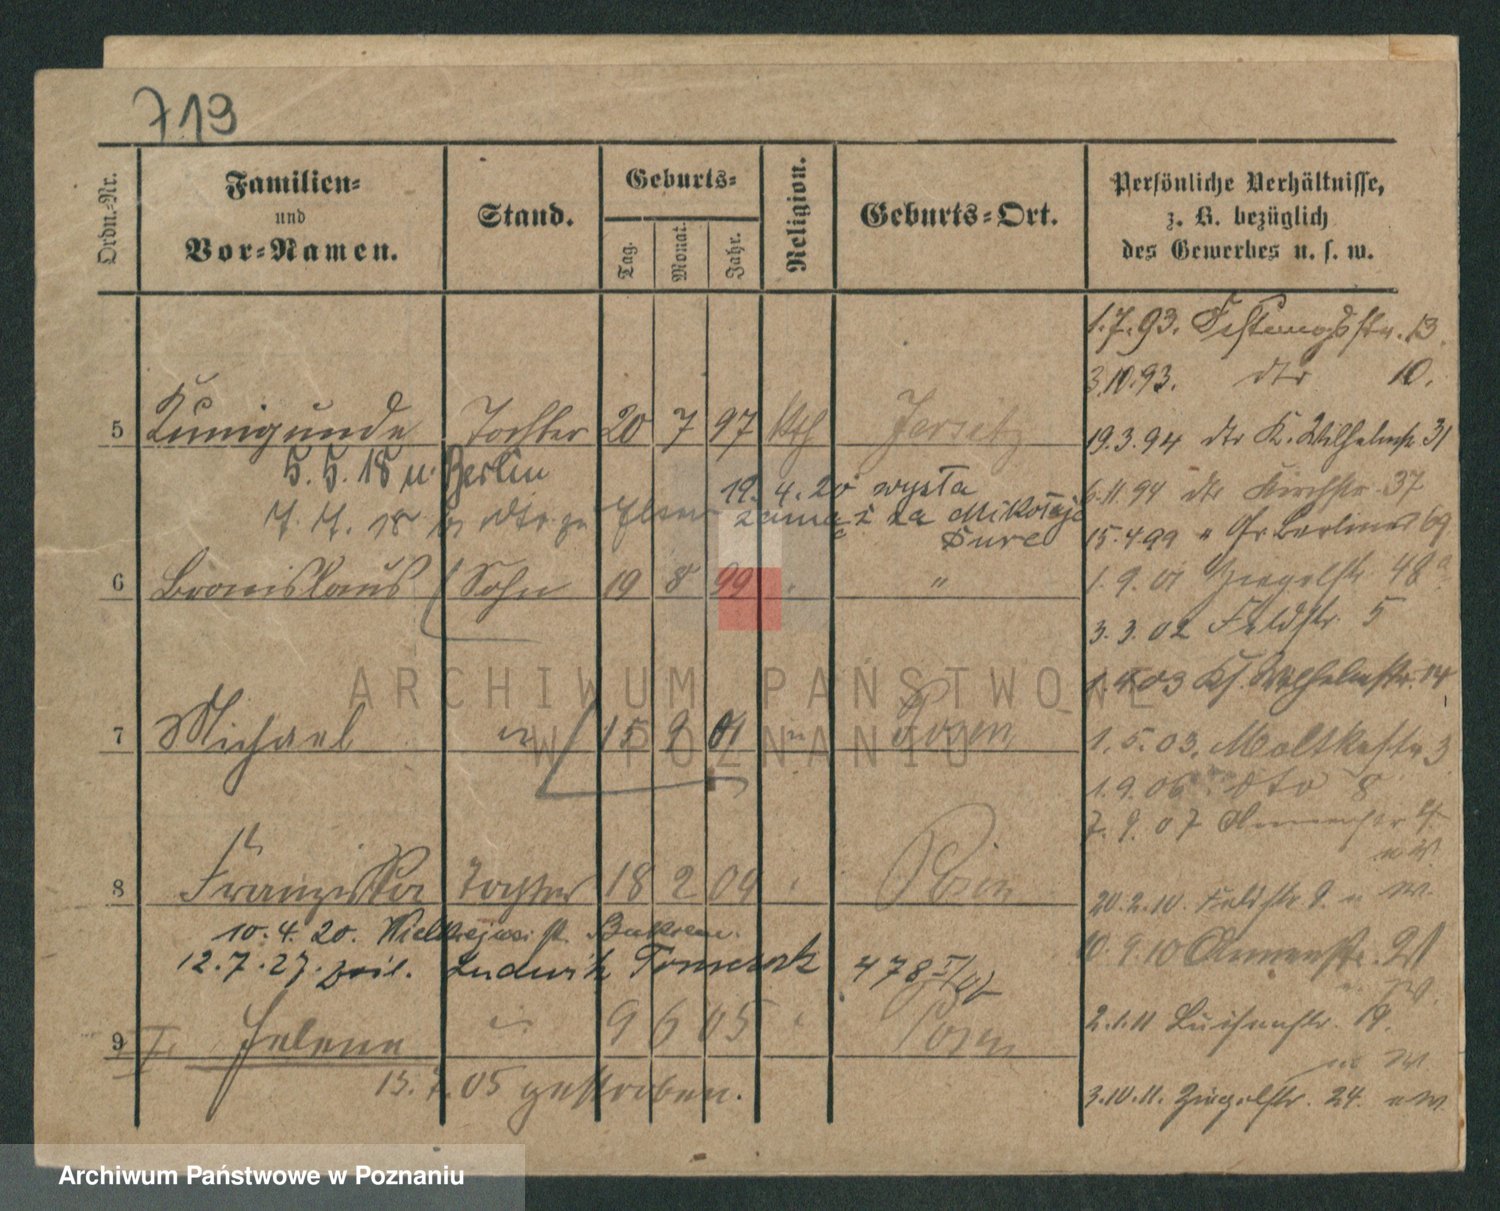 713
Ordn.-Nr.
Familien-
und
Vor-Namen.
Stand.
Geburts-
Tag.
Monat.
Jahr.
Religion.
Geburts-Ort.
Persönliche Verhältnisse,
z. B. bezüglich
des Gewerbes u. s. w.
1.7.93. Festungsstr. 13.
3.10.93. dto 10.
5 Kunigunde Tochter 20 7 97 kth Jersitz
19.3.94 dto K. Wilhelmstr. 31
5.5.18 n. Berlin
6.11.94 dto Kirchstr. 37
19.4.20 wyszła
7.7.18 dto
zamąż za Mikołaja
Dure
15.4.99 " Gr Berliner 69
6 Bronislaus Sohn 19 8 99 " "
1.9.01 Ziegelstr. 48a
3.3.02 Feldstr. 5
1.4.03 Ks. Wilhelmstr. 14
ARCHIWUM PAŃSTWOWE
7 Michael " 15 9 01 " Posen
1.5.03. Moltkestr 3
W POZNANIU
1.9.06. dto 8
7.9.07
8 Franziska Tochter 18 2 04 " Posen
20.2.10. Feldstr. 9.
10.4.20.
10.9.10 Annenstr.
12.7.27. Ludwik 478
2.1.11 Luisenstr. 19.
9 Helene " 9 6 05 " Posen
13.7.05 gestorben.
3.10.11. Ziegelstr. 24.
Archiwum Państwowe w Poznaniu